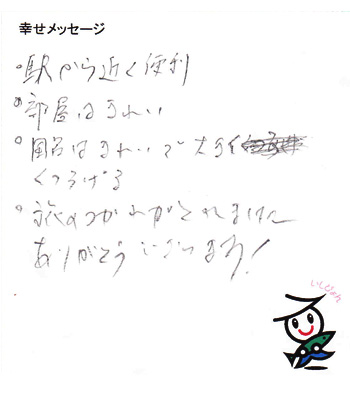 幸せメッセージ
。駅から近く便利
。部屋はきれい
。風呂はきれいで大きく
くつろげる
。旅のつかれがとれました
ありがとうございます!
いしぴょん